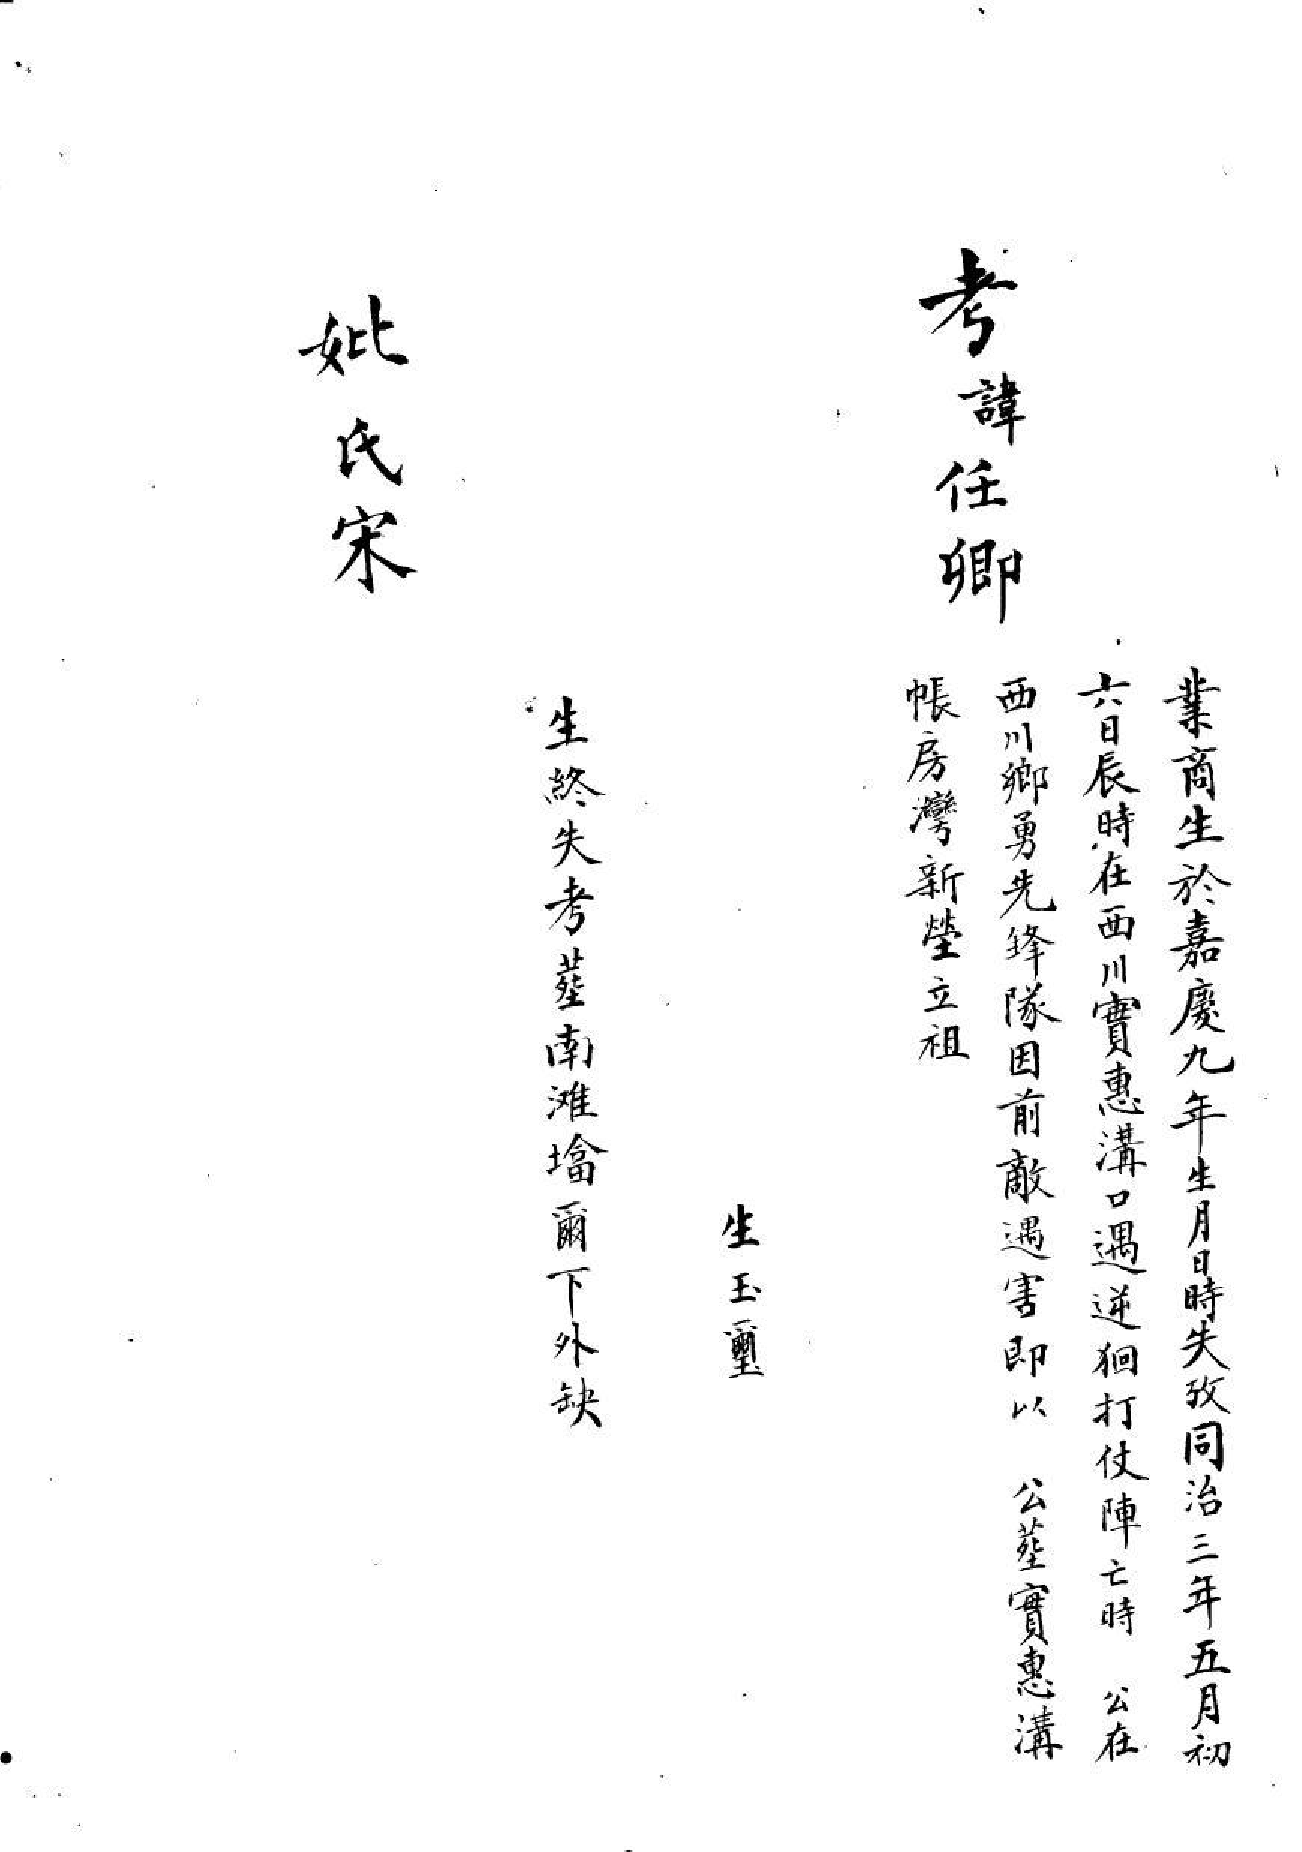 考諱任卿
業商生於嘉慶九年生月日時失攷同治三年五月初
六日辰時在西川實惠溝口遇逆徊打仗陣亡時 公在
西川鄉勇先鋒隊因前敵遇害即以 公塟實惠溝
帳房灣新塋立祖
生玉璽
妣氏宋
生終失考塟南滩墖爾下外缺